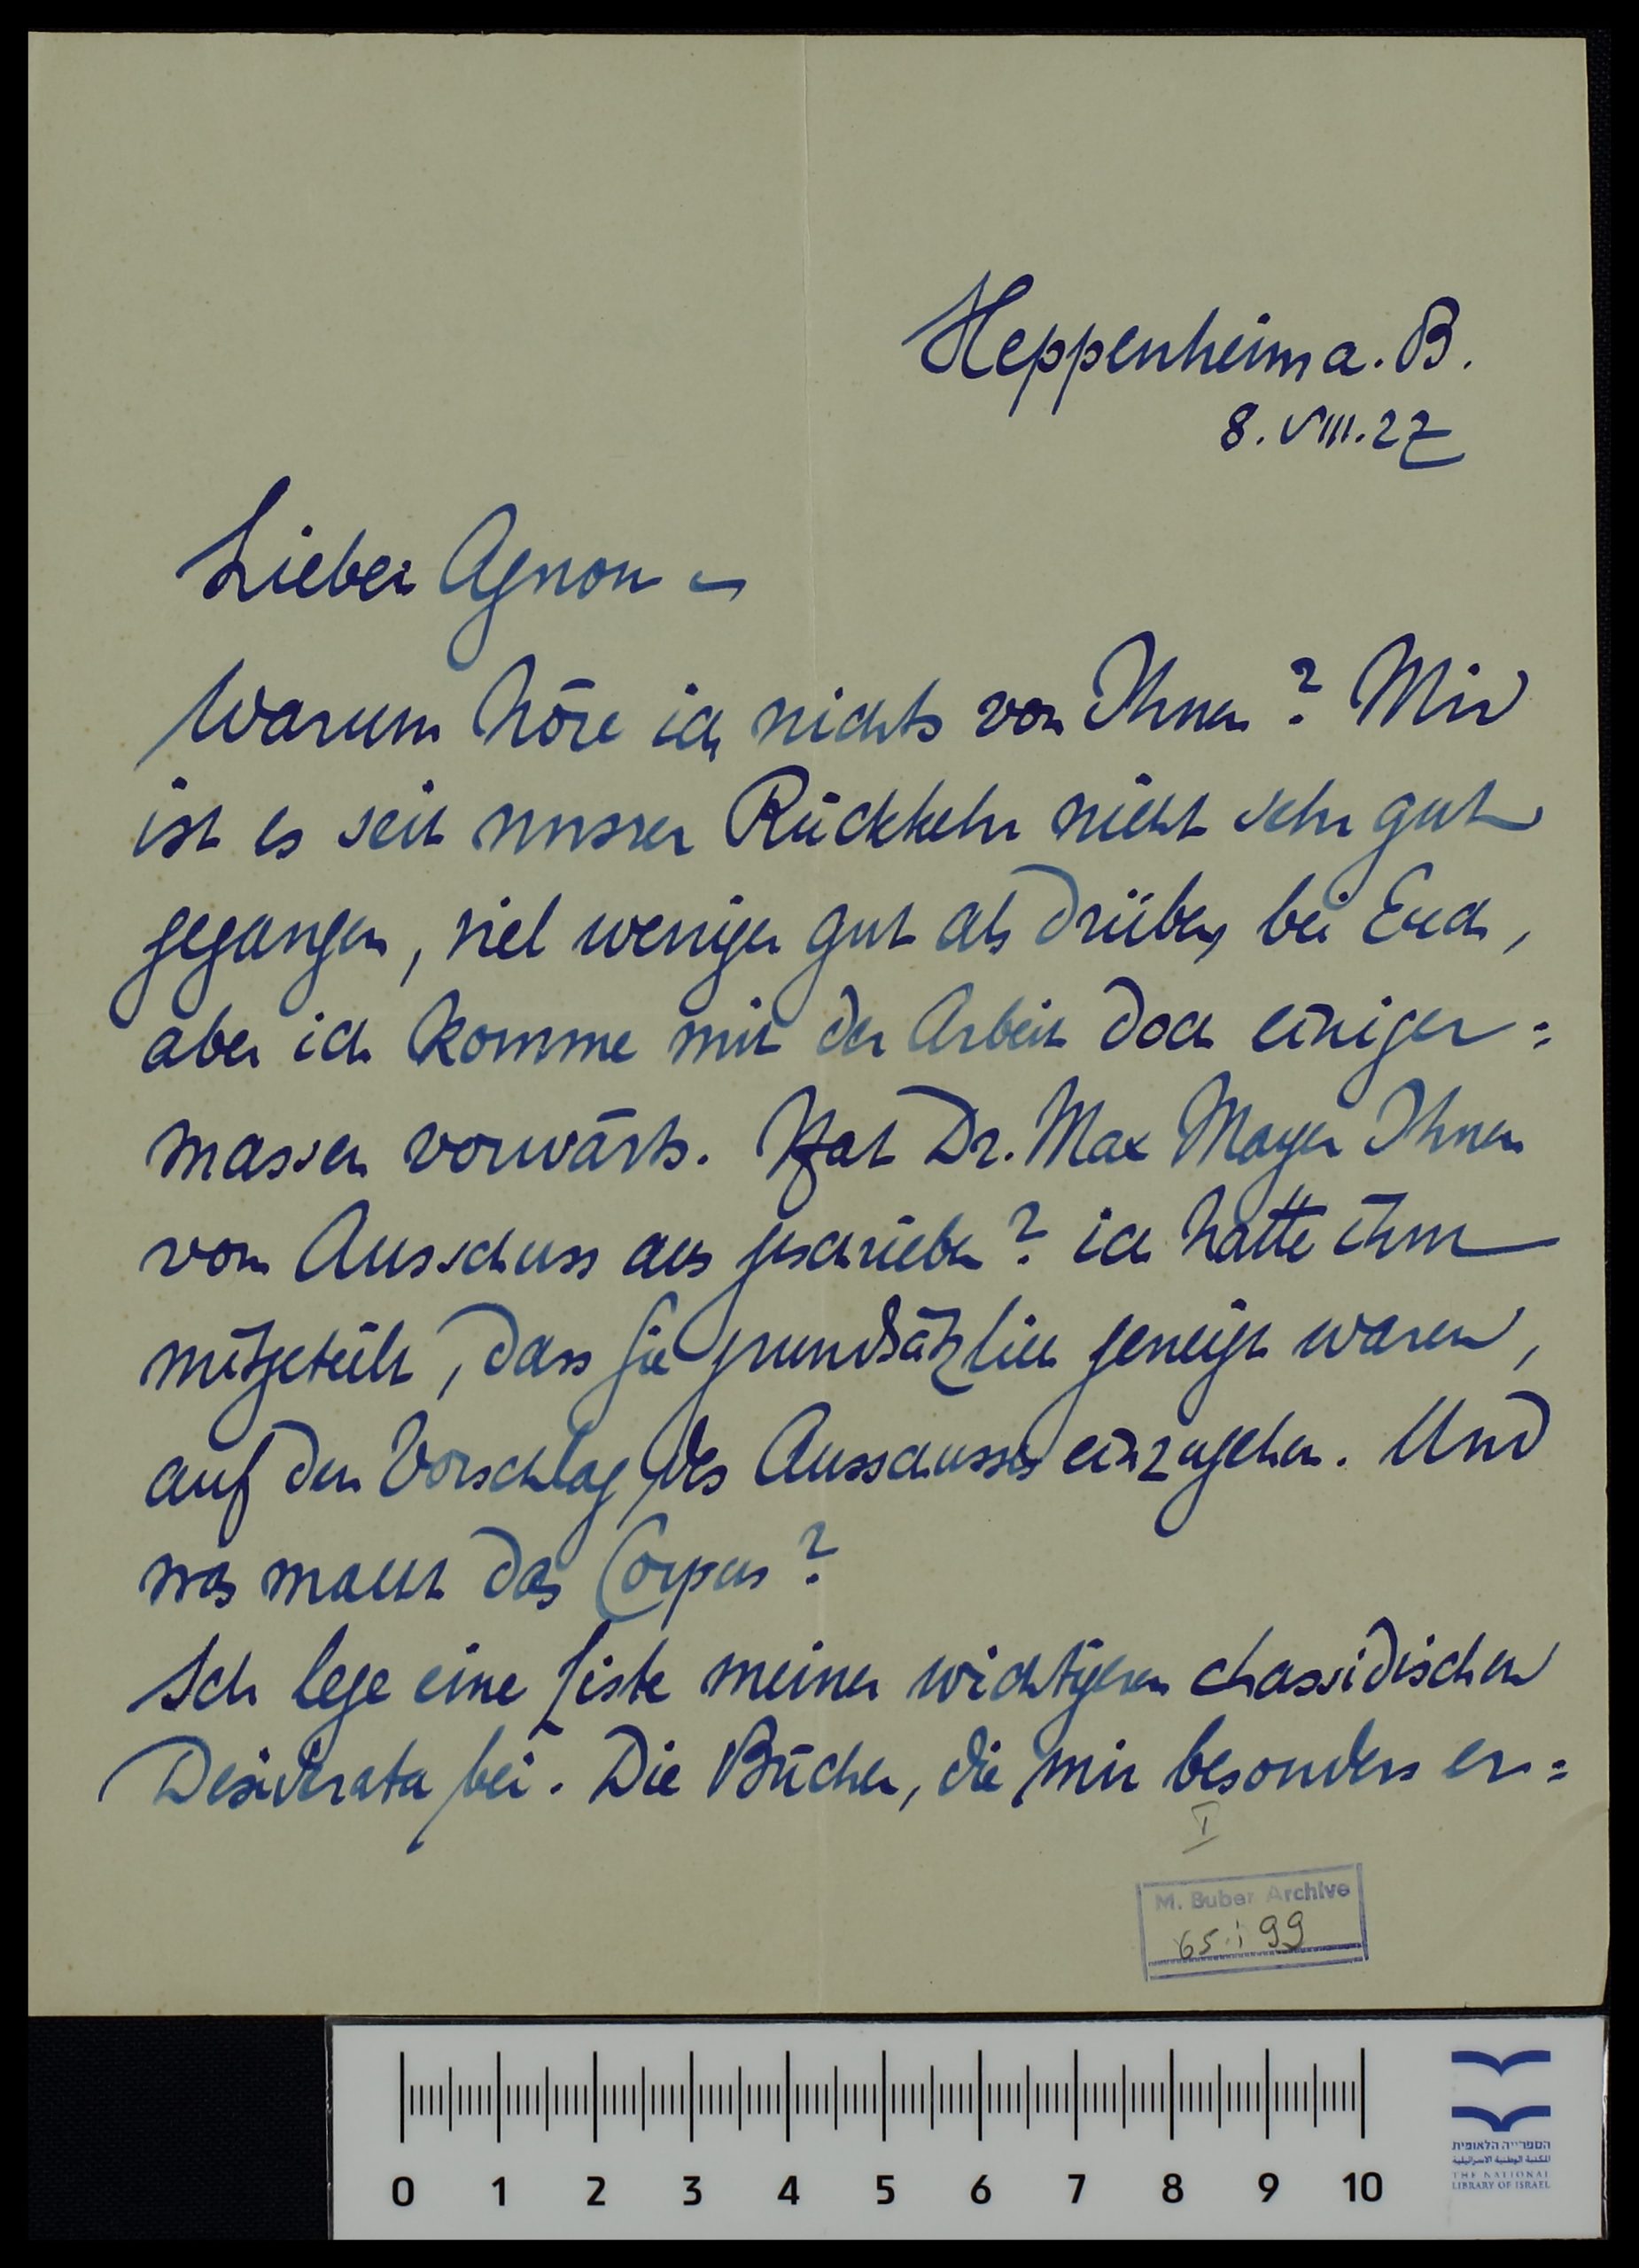 Heppenheim a. B.
8. VIII. 27
Lieber Agnon –
Warum höre ich nichts von Ihnen? Mir
ist es seit unsrer Rückkehr nicht sehr gut
gegangen, viel weniger gut als drüben bei Euch,
aber ich komme mit der Arbeit doch einiger=
massen vorwärts. Hat Dr. Max Mayer Ihnen
vom Ausschuss aus geschrieben? ich hatte ihm
mitgeteilt, dass Sie grundsätzlich geneigt waren,
auf den Vorschlag des Ausschusses einzugehen. Und
was macht das Corpus?
Ich lege eine Liste meiner wichtigeren chassidischen
Desiderata bei. Die Bücher, die mir besonders er=
I
M. Buber Archive
65 i 99
0 1 2 3 4 5 6 7 8 9 10
הספרייה הלאומית
المكتبة الوطنية الاسرائيلية
THE NATIONAL
LIBRARY OF ISRAEL